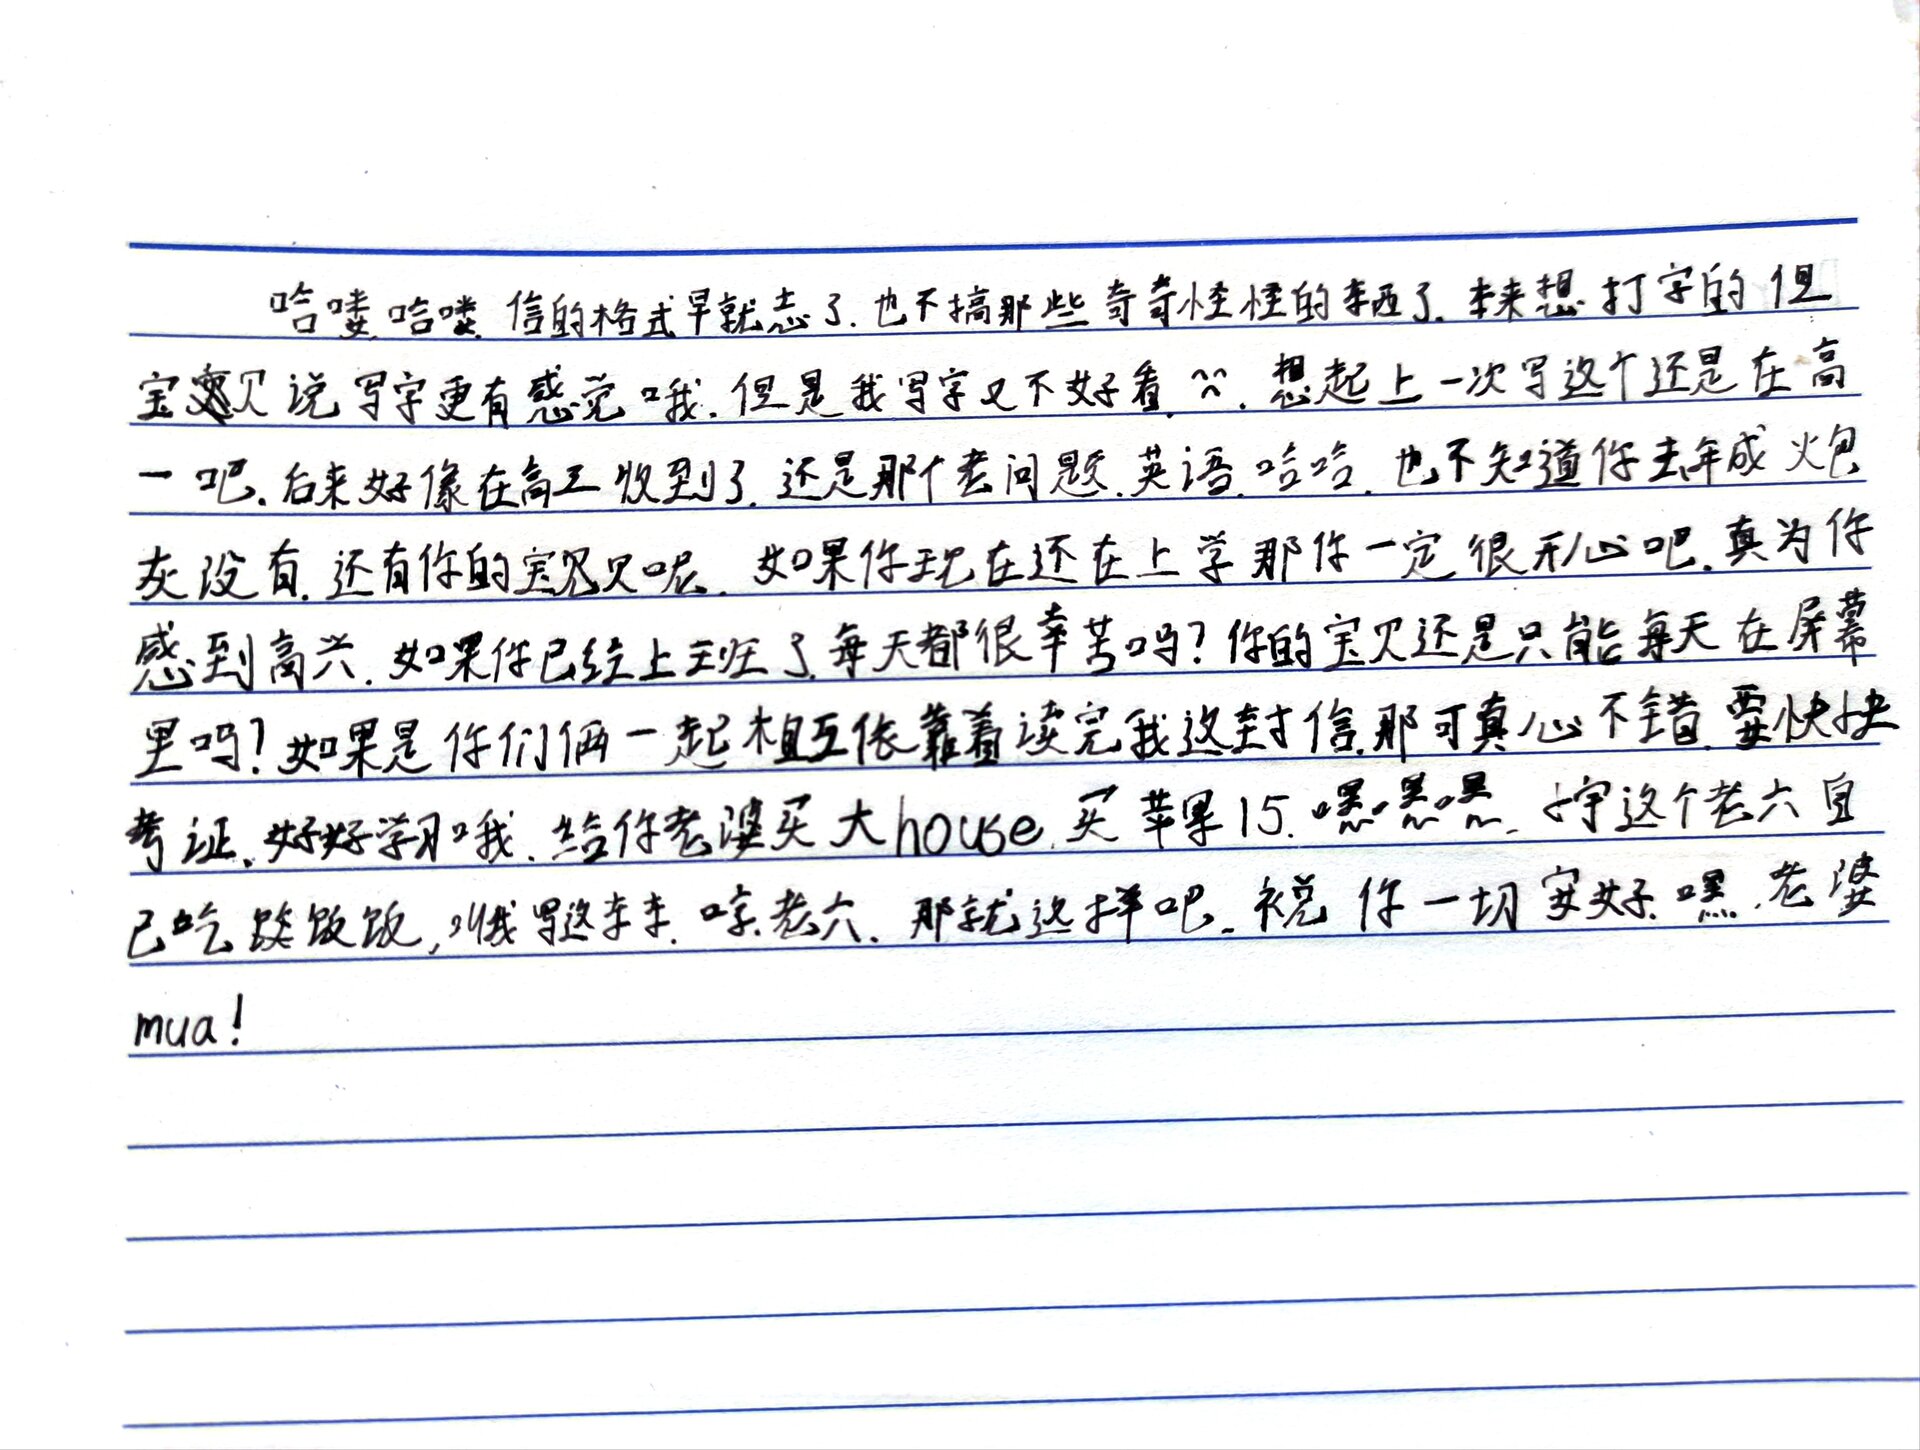 哈喽哈喽.信的格式早就忘了.也不搞那些奇奇怪怪的东西了.本来想打字的但
宝贝说写字更有感觉哦.但是我写字又不好看.^^.想起上一次写这个还是在高
一吧.后来好像在高三收到了.还是那个老问题.英语.哈哈.也不知道你去年成火包
灰没有.还有你的宝贝呢.如果你现在还在上学那你一定很开心吧.真为你
感到高兴.如果你已经上班了.每天都很辛苦吗?你的宝贝还是只能每天在屏幕
里吗?如果是你们俩一起相互依靠着读完我这封信.那可真心不错.要快快
考证.好好学习哦.给你老婆买大house.买苹果15.嘿嘿嘿.宇这个老六自
己吃饭饭,哦写这.哼.老六.那就这样吧.祝你一切安好.嘿.老婆
mua!